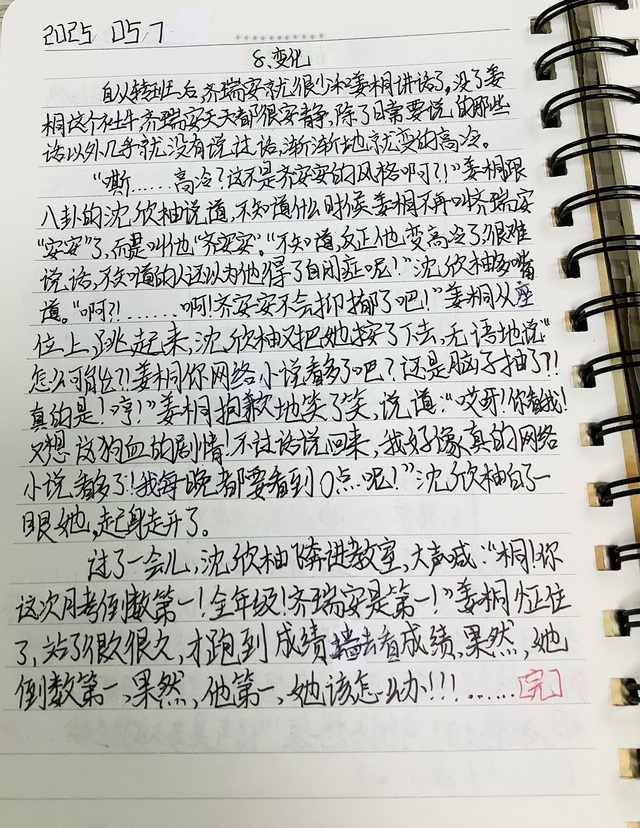 2025 05,7
8、变化
自从转班后,齐瑞安就很少和姜桐讲话了。没了姜
桐这个社牛,齐瑞安天天都很安静,除了日常要说的那些
话以外几乎就没有说过话,渐渐地就变的高冷。
“嘶……高冷?这不是齐安安的风格啊?!”姜桐跟
八卦的沈欣柚说道,不知道什么时候姜桐不再叫齐瑞安
“安安”了,而是叫他“齐安安”。“不知道,反正他变高冷了,很难
说话,不知道的人还以为他得了自闭症呢!”沈欣柚嘟嘴
道。“啊?!……啊!齐安安不会抑郁了吧!”姜桐从座
位上了跳起来,沈欣柚又把她按了下去,无语地说“
怎么可能?!姜桐你网络小说看多了吧?还是脑子抽了?!
真的是!哼!”姜桐抱歉地笑了笑,说道:“哎呀!你看我!
又想这狗血的剧情!不过话说回来,我好像真的网络
小说看多了!我每晚都要看到0点呢!”沈欣柚白了一
眼她,起身走开了。
过了一会儿,沈欣柚飞奔进教室,大声喊:“桐!你
这次月考倒数第一!全年级!齐瑞安是第一!”姜桐怔住
了,站了很久很久,才跑到成绩墙去看成绩,果然,她
倒数第一,果然,他第一,她该怎么办!!!……[完]